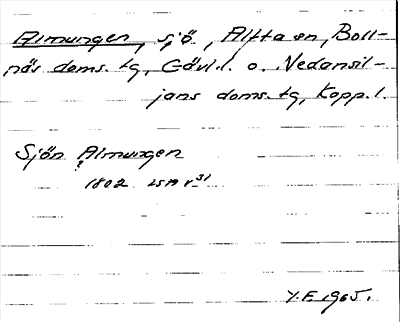 Almungen, sjö, Alfta sn, Boll-
näs doms. tg, Gävl. l. o. Nedansil-
jans doms. tg, Kopp. l.
Sjön Almungen
1802 LSA V 31
Y.F. 1965.